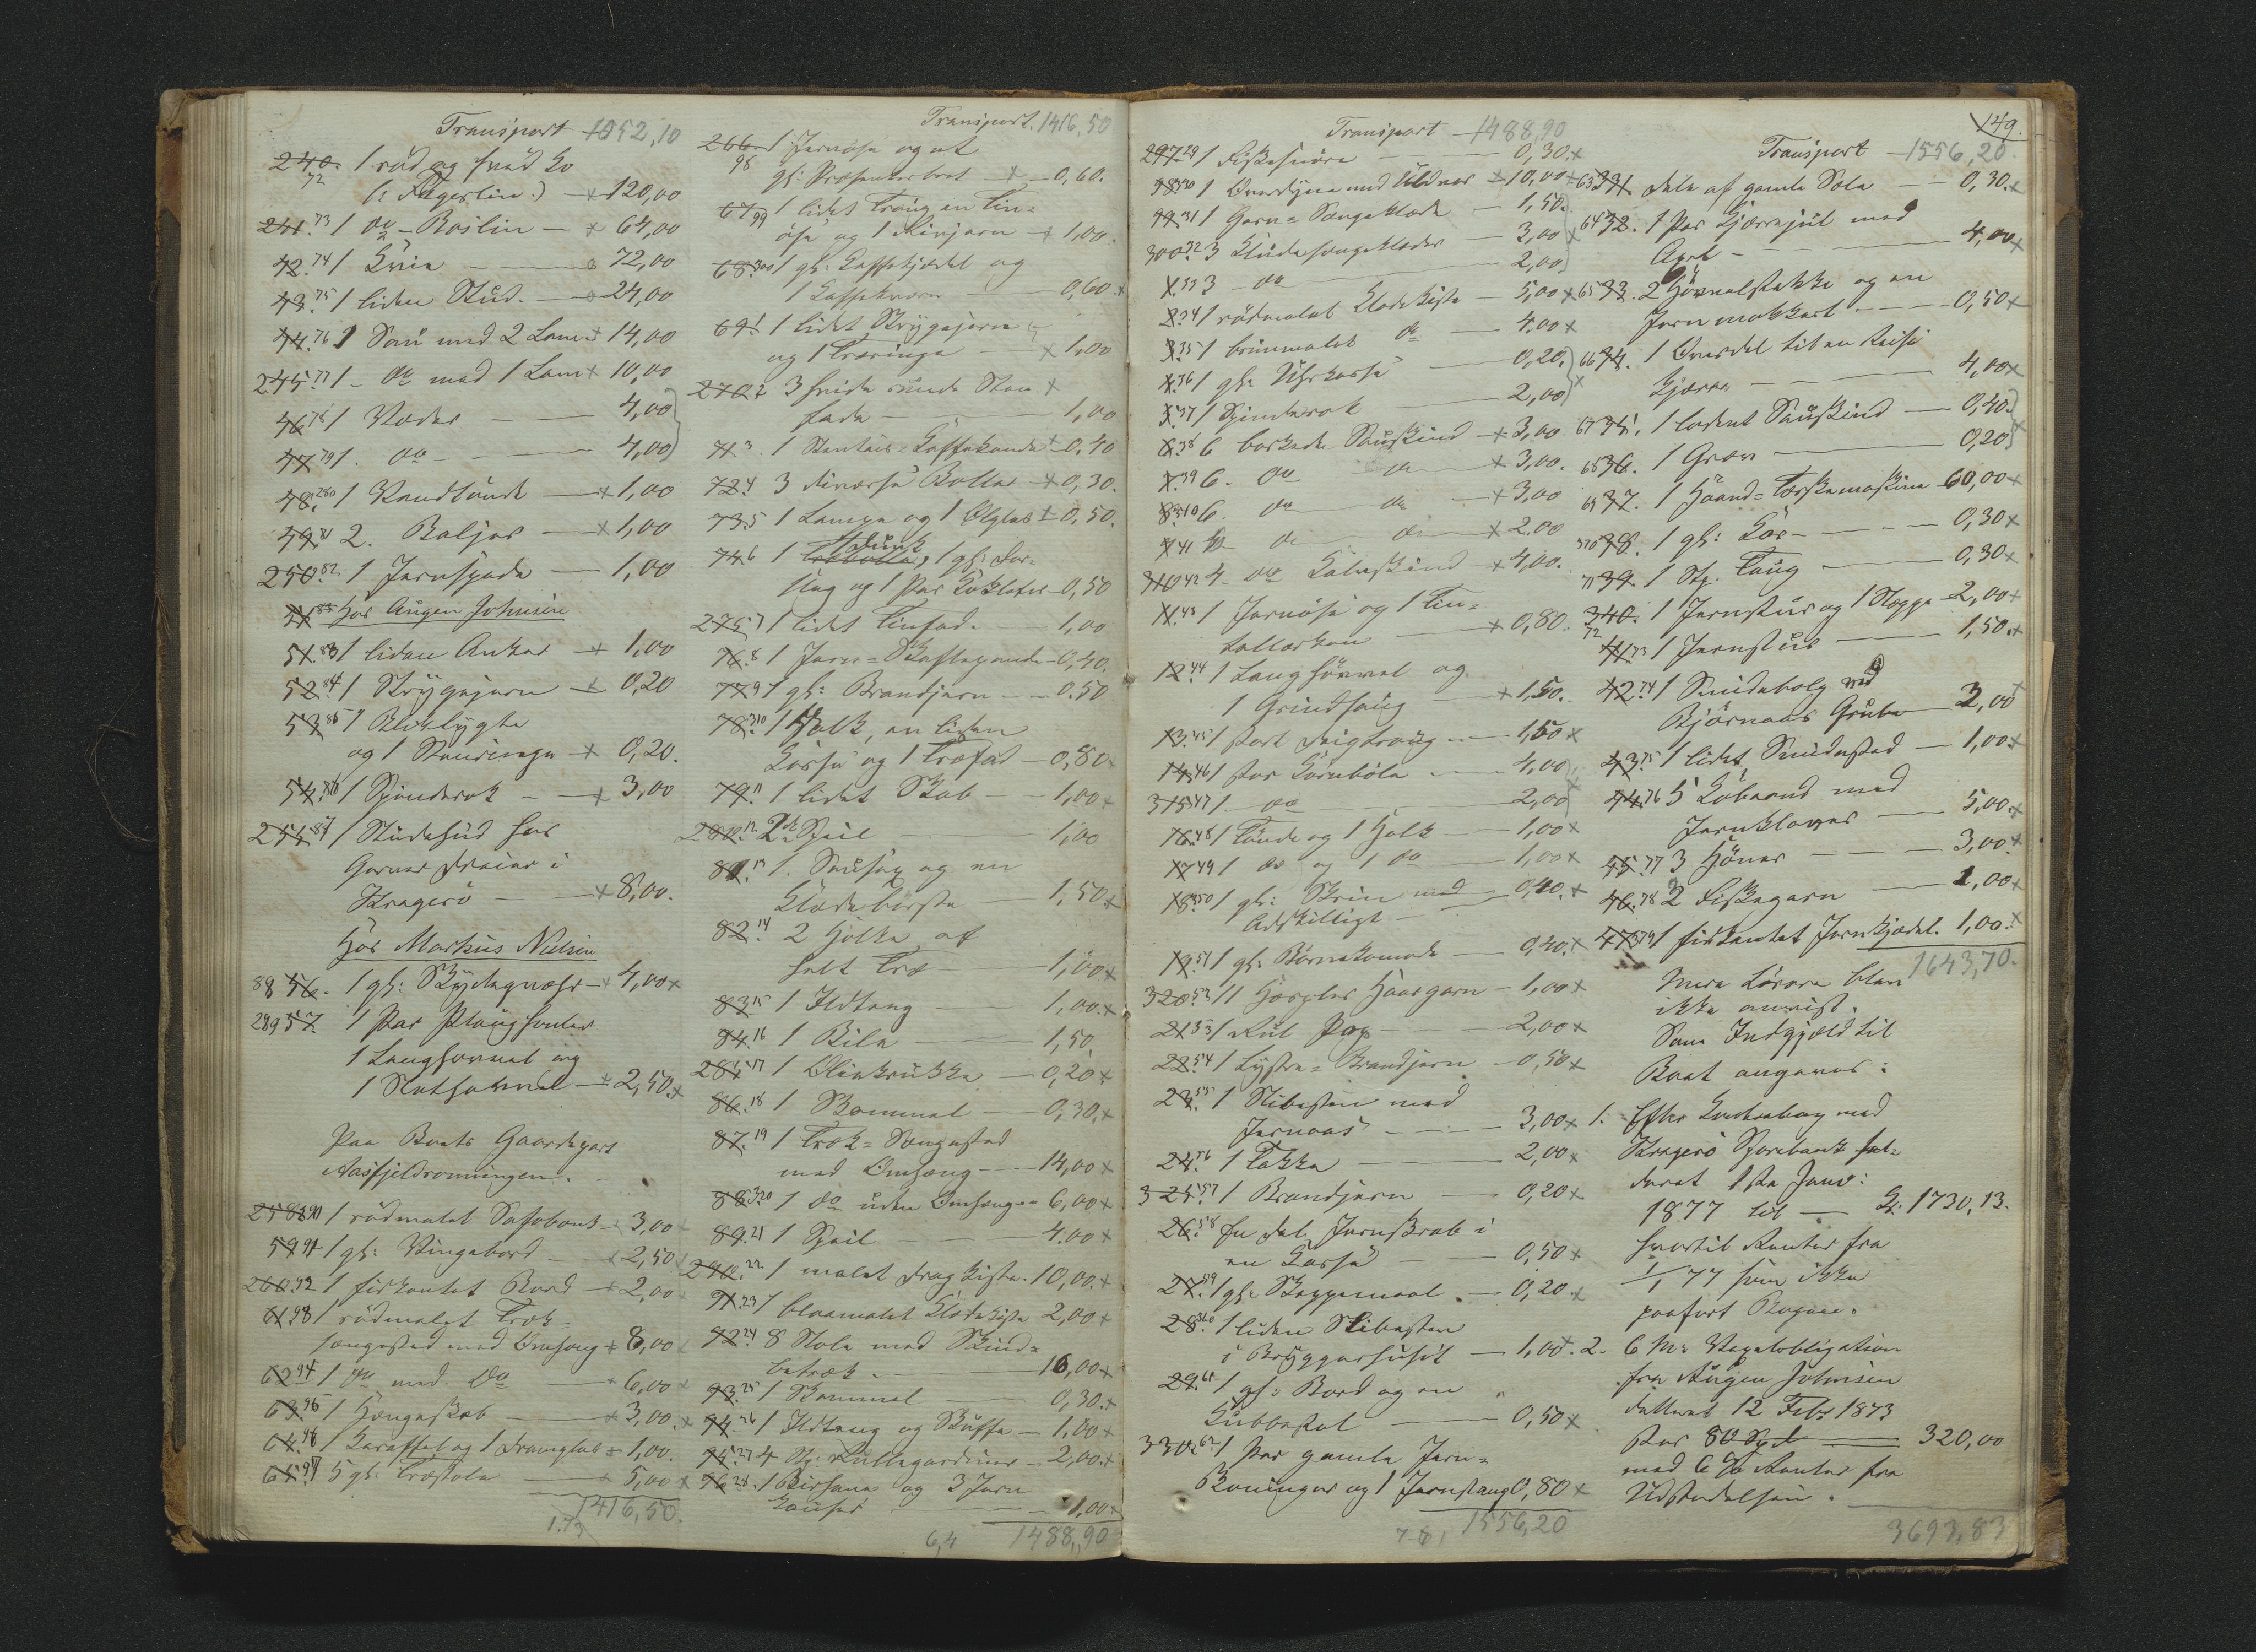 Transport 1052,10
240. 72 1 rød og hvid Ko
(: Fagerlin:) 120,00
241. 73 1 do - Roslin 64,00
42. 74 1 Kvie 72,00
43. 75 1 liden Stud. 24,00
44. 76 1 Sau med 2 Lam 14,00
245. 77 1 do med 1 Lam 10,00
46. 78 1 Væder 4,00
47. 79 1. do 4,00
48. 280 1 Vandtønde 1,00
49. 81 2. Baljer 1,00
250. 82 1 Jernspade 1,00
Hos Augen Johnsen
51. 83 1 liden Anker 1,00
52. 84 1 Strygejern 0,20
53. 85 1 Bliklygte
og 1 0,20.
54. 86 1 Spinderok 3,00
255. 87 1 Studehud hos
Garver i
Kragerø 8,00.
Hos Markus Nielsen
88 56. 1 gl: 4,00
289 57. 1 Par
1 Langhøvvel og
1 Slethøvvel 2,50.
Paa Boets Gaardepart
Aasfjeldrønningen.
258. 290 1 rødmalet 3,00
59. 91 1 gl: Vingebord 2,50
260. 92 1 firkantet Bord 2,00
61. 93 1 rødmalet Træk-
sengested med Omhæng 8,00
62. 94 1 do med Do 6,00
63. 95 1 Hængeskab 3,00
64. 96 1 Karaffel og 1 Dramglas 1,00.
65. 97 5 gl: Træstole 5,00
1416,50.
Transport. 1416,50
266. 98 1 Jernøse og et
gl: Præsenterbret 0,60.
67. 99 1 lidet Traug en Tin-
øse og 1 Rivjern 1,00.
68. 300 1 gl: Kaffekjedel og
1 Kaffekværn 0,60
69. 1 1 lidet Strygejern
og 1 1,00
270. 2 3 hvide runde Sten
fade 1,00
71. 3. 1 Stentøis-Kaffekande 0,40
72. 4 3 diverse Boller 0,30.
73. 5 1 Lampe og 1 Ølglas 0,50.
74. 6 1 1 gl: Dør-
slag og 1 Par 0,50
275. 7 1 lidet Tinfad. 1,00
76. 8 1 Jern-Skaftepande 0,40.
77. 9 1 gl: Brandjern 0,50
78. 310 1 Holk, en liden
Kasse og 1 Træfad 0,80
79. 11 1 lidet Skab 1,00
280. 12 2 Speil 1,00
81. 13 1. Sausax og en
Klædebørste 1,50
82. 14 2 Holke af
helt Træ 1,00
83. 15 1 Ildtang 1,00.
84. 16 1 Bile 1,50
285. 17 1 Oliekrukke 0,20
86. 18 1 Skammel 0,30.
87. 19 1 Træk-Sengested
med Omhæng 14,00
88. 320 1 do uden Omhæng 6,00
89. 21 1 Speil 4,00
290. 22 1 malet Dragkiste. 10,00.
91. 23 1 blaamalet Klædekiste 2,00
92. 24 8 Stole med Skind-
betræk. 16,00
93. 25 1 Skammel 0,30.
94. 26 1 Ildtang og Skuffe 1,00
95. 27 4 St: Rullegardiner 2,00.
96. 28. 1 og 3 Jern
1,00
6,4 1488,90
Transport 1488,90
297. 29 1 Fiskesnøre 0,30.
98. 330 1 Overdyne med Uldvar 10,00
99. 31 1 Garn-Sengeklæde 1,50
300. 32 3 Kludesengeklæder 3,00
1. 33 3 do 2,00
2. 34 1 rødmalet Klædekiste 5,00
3. 35 1 brunmalet do 4,00
4. 36 1 gl: Uhrkasse 0,20.
5. 37 1 Spinderok 2,00
6. 38 6 barkede Sauskind 3,00
7. 39 6. do do 3,00.
8. 340 6. do do 3,00
9. 41 do do 2,00
310. 42 4 do Kalveskind 4,00.
11. 43 1 Jernøse og 1 Tin-
tallerken 0,80.
12. 44 1 Langhøvvel og
1 Grindsaug 1,50.
13. 45 1 stort Deigtraug 1,50
14. 46 1 stor Kornbøle 4,00
315. 47 1 do 2,00
16. 48 1 Tønde og 1 Holk 1,00
17. 49 1 do og 1 do 1,00
18. 350 1 gl: Skrin med 0,40.
Adskilligt
19. 51 1 gl: Børnekomode 0,40.
320. 52 11 Hæspler Haargarn 1,00
21. 53 1 Rul Pap 2,00
22. 54 1 Lystre-Brandjern 0,50
23. 55 1 Slibesten med
Jernaas 3,00
24. 56 1 Takke 2,00
325. 57 1 Brandjern 0,20
26. 58 En Del Jernskrab i
en Kasse 0,50
27. 59 1 gl: Skjeppemaal. 0,20.
28. 360 1 liden Slibesten
i Bryggerhuset 1,00.
29. 61 1 gl: Bord og en
Kubbestol 0,50
330. 62 1 Par gamle Jern-
og 1 Jernstang 0,80
1556,20
149.
Transport 1556,20.
63 31. Dele af gamle Sæler 0,30.
64 32. 1 Par Kjærrehjul med
Axel 4,00
65 33. 2 Høvvelstokke og en
Jern 0,50
66 34. 1 Overdel til en Reise
Kjærre 4,00
67 35. 1 lodent Sauskind 0,40.
68 36. 1 Grev 0,20
69 37. 1 Haand-Tærskemaskine 60,00
370 38. 1 gl: Kar 0,30
71 39. 1 St. Taug 0,30
340. 72 1 Jernstør og 1 Slægge 2,00
41. 73 1 Jernstør 1,50.
42. 74 1 Smidebælg ved
Bjørnaas Grube 3,00
43. 75 1 lidet Smidested 1,00.
44. 76 5 Kobaand med
Jernklaver 5,00.
45. 77 3 Høner 3,00.
46. 78 2 Fiskegarn 1,00
47. 379 1 firkantet Jernkjædel. 1,00.
1643,70.
Mere Løsøre blev
ikke anvist.
Som Indgjæld til
Boet angaves:
1. Efter Kontrabog med
Kragerø Sparebank sal-
deret 1ste Janv:
1877 til Kr. 1730,13.
hvortil Renter fra
1/1 77 som ikke
paaført Bogen.
2. 6 Mrs Vexelobligation
fra Augen Johnsen
datteret 12 Febr 1873
Stor 80 Spd 320,00
med 6 % Renter fra
Udstedelsen.
3693,83